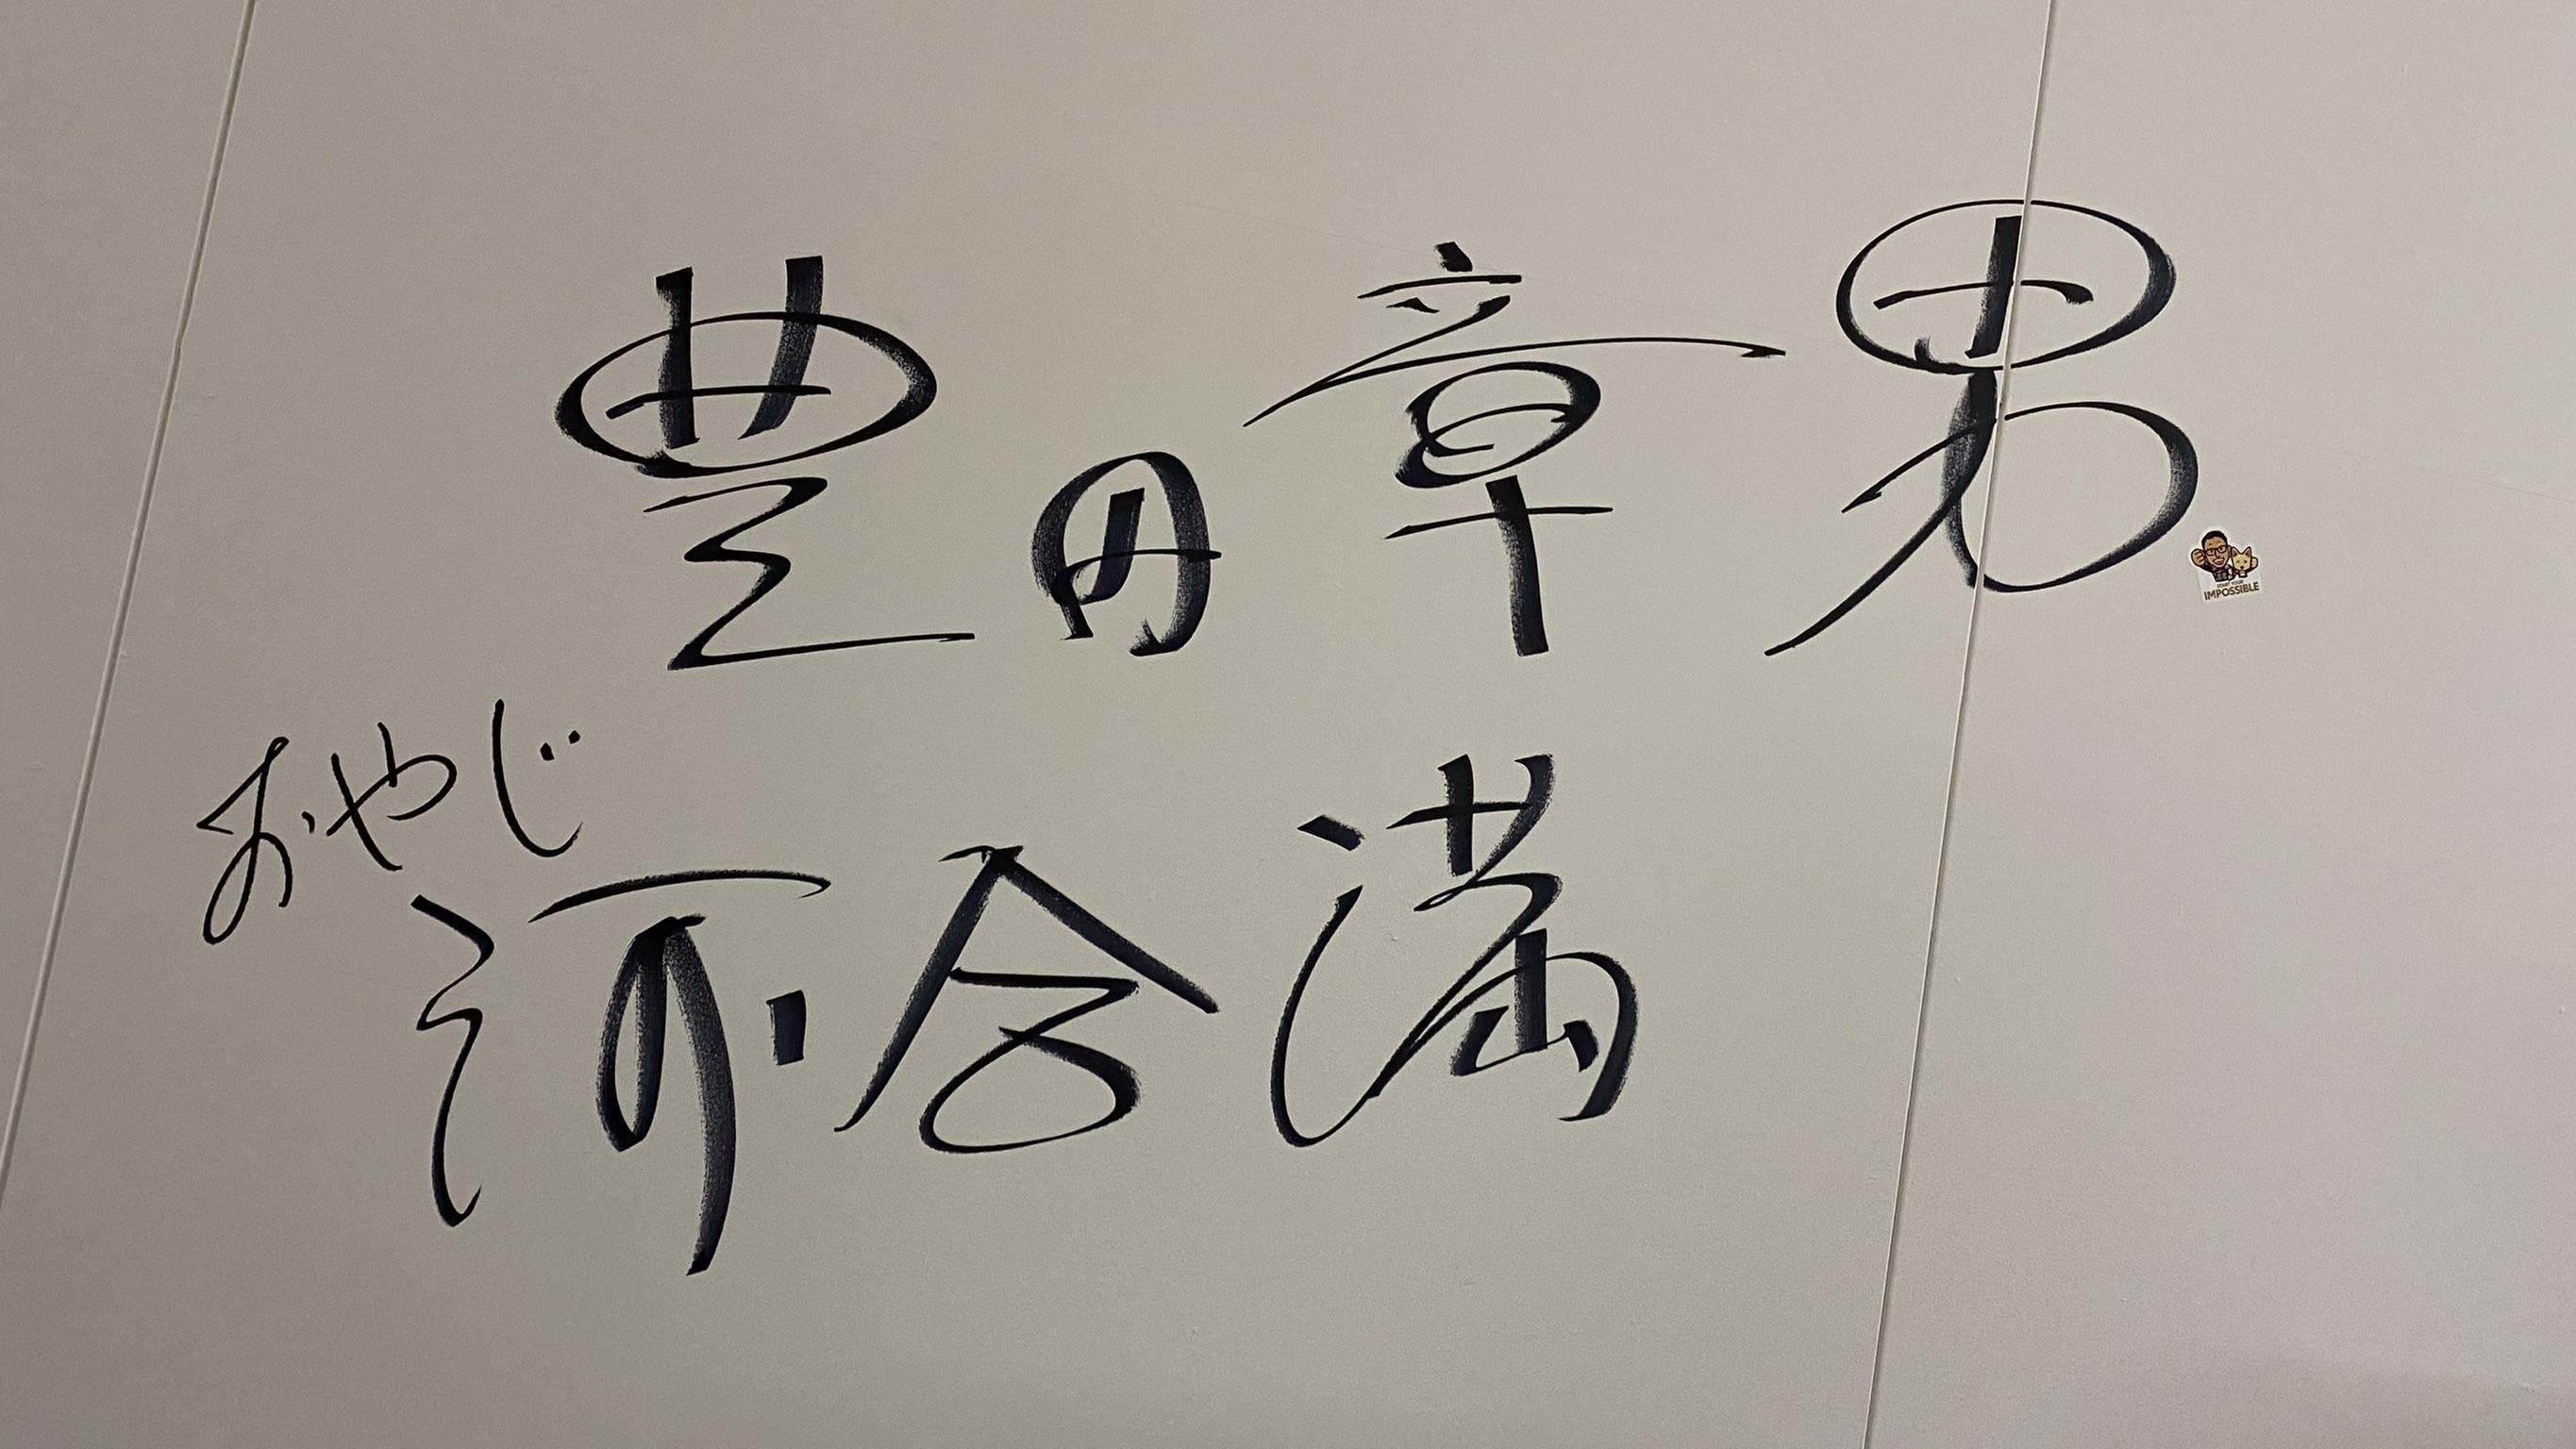 豊田章男
START YOUR
IMPOSSIBLE
おやじ
河合満